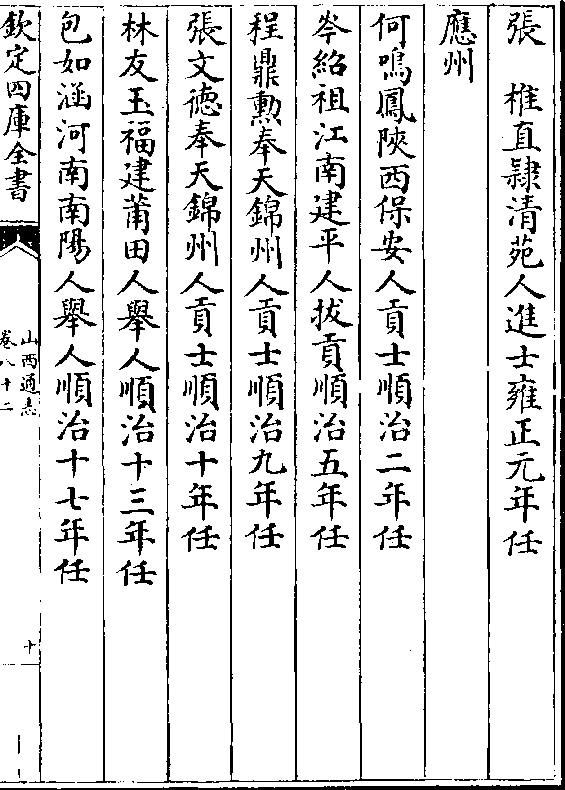 張　椎直隸清苑人進士雍正元年任
應州
何鳴鳳陜西保安人貢士順治二年任
岑紹祖江南建平人拔貢順治五年任
程鼎勲奉天錦州人貢士順治九年任
張文德奉天錦州人貢士順治十年任
林友玉福建莆田人舉人順治十三年任
包如涵河南南陽人舉人順治十七年任
欽定四庫全書
山西通志
卷八十二
十